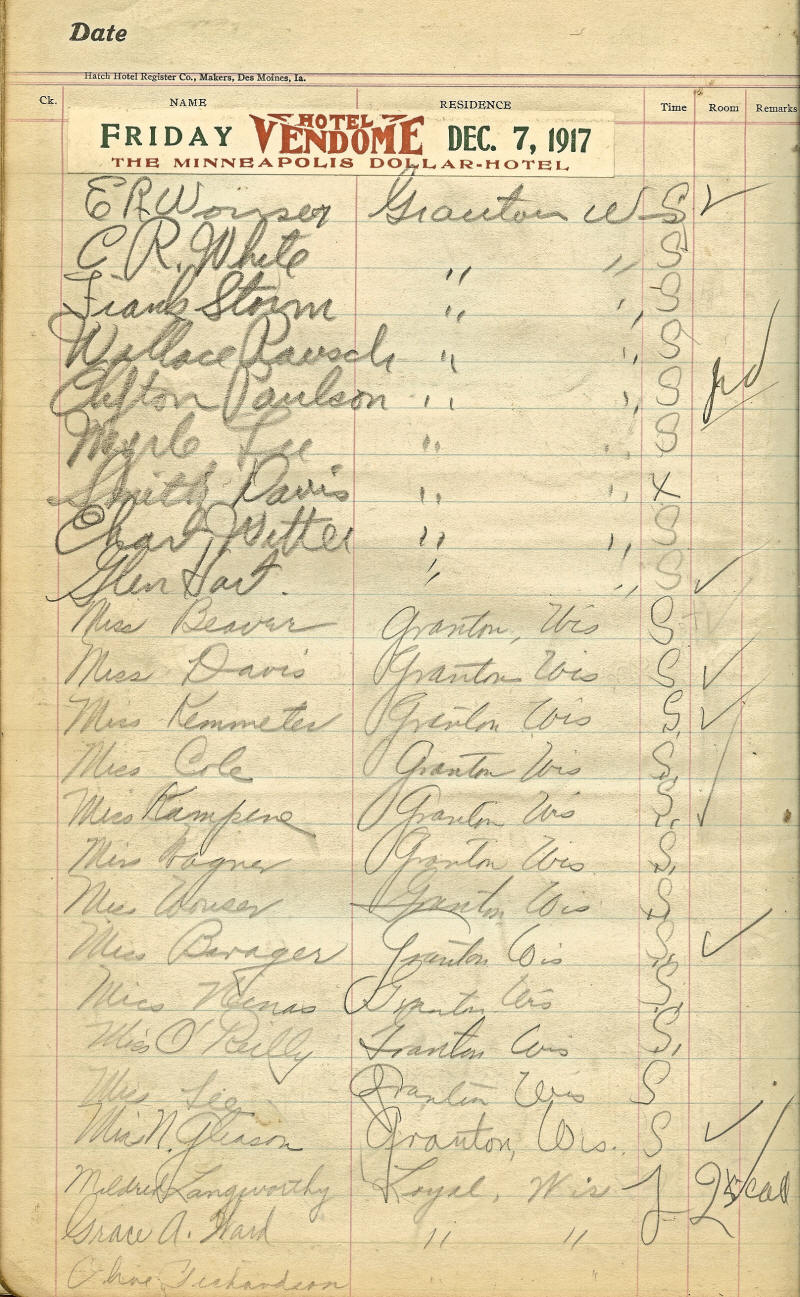 Date
Hatch Hotel Register Co., Makers, Des Moines, Ia.
Ck. NAME RESIDENCE Time Room Remarks
FRIDAY HOTEL VENDOME DEC. 7, 1917
THE MINNEAPOLIS DOLLAR-HOTEL
E R Granton W S ✓
C. R. White " " S
Frank Storm " " S
Wallace Rausch " " S
Clifton Paulson " " S pd
Myrle Lee " " S
Smith Davis " " X
Chas Witter " " S
Glen Hart. " " S ✓
Miss Beaver Granton, Wis S
Miss Davis Granton Wis S ✓
Miss Kemmeter Granton Wis S, ✓
Miss Cole Granton Wis S,
Miss Kampine Granton Wis S, ✓
Miss Wagner Granton Wis S,
Miss Granton Wis S,
Miss Barager Granton Wis S, ✓
Miss Nenas Granton Wis S,
Miss O'Reilly Granton Wis S,
Miss Lee Granton Wis S
Miss N. Gleason Granton, Wis. S ✓
Mildred Langworthy Loyal, Wis
Grace A. Ward " "
Olive Richardson